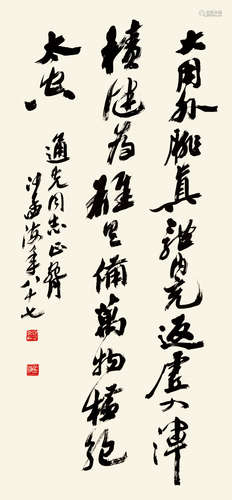 大用外腓真體内充返虛入渾
積健爲雄具備萬物橫絶
太空
通先同志正臂
沙孟海年八十七